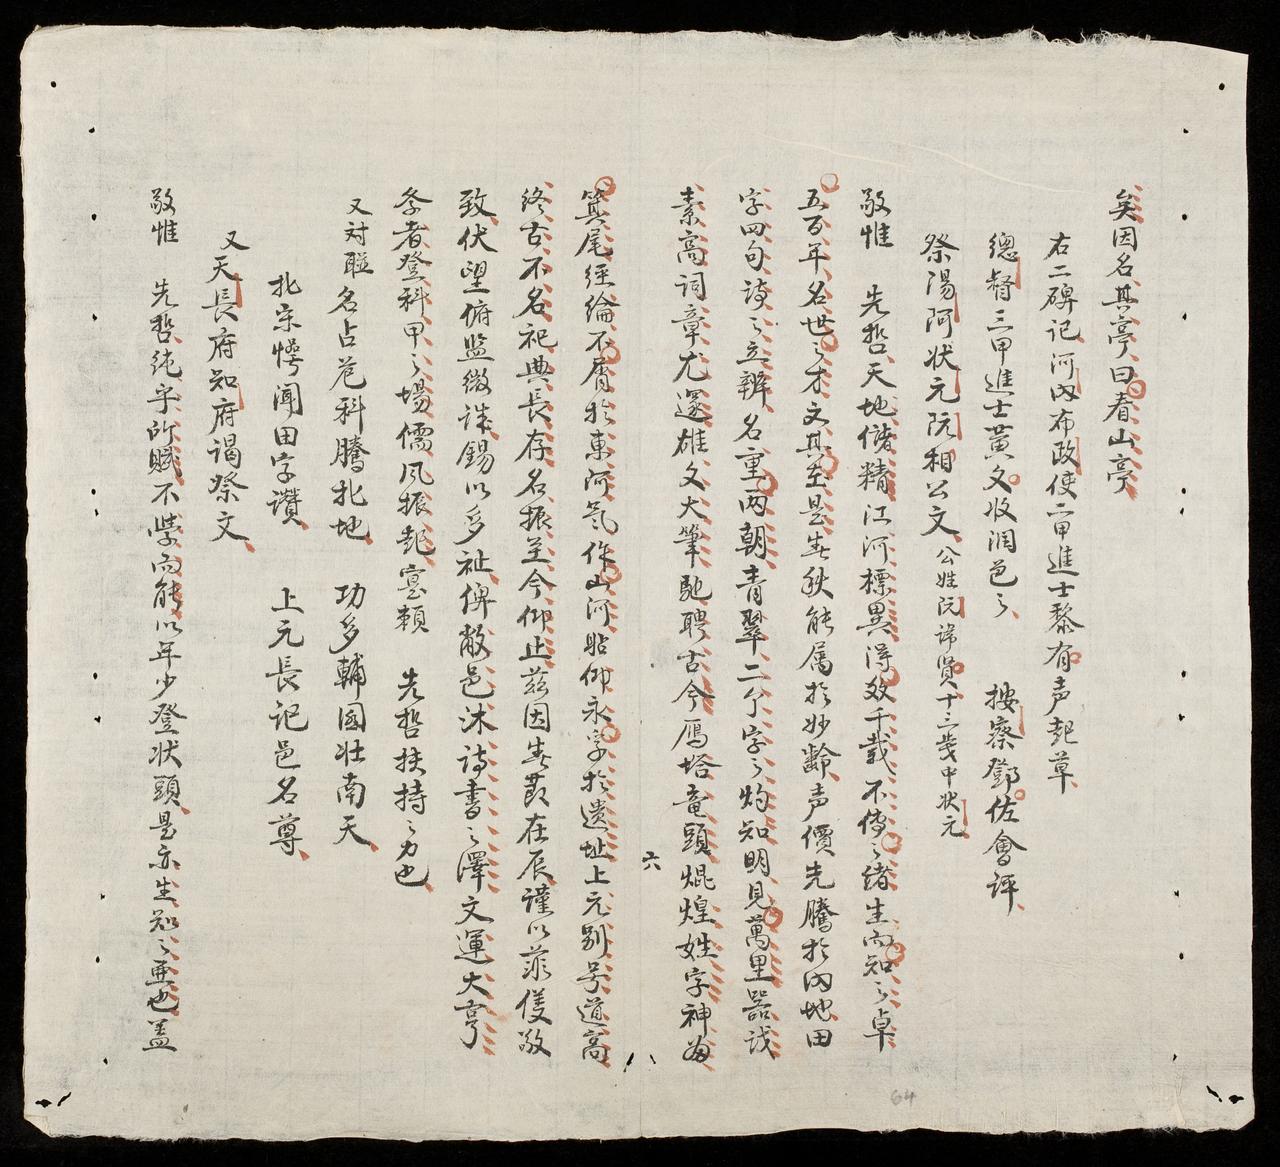 矣因名其亭曰春山亭
右二碑记河内布政使二甲進士黎有声起草
總督三甲進士黃文收润邑々 按察鄧佐會評
祭陽阿状元阮相公文 公姓阮諱實十三歲中状元
敬惟 先哲天地儲精江河標異得效千載不傳之緒生而知之卓
五百年名世之才文其在是春秋能属於妙齡声價先騰於内地田
字四句詩之立辨名重両朝青翠二个字之灼知明見萬里器識
素高詞章尤邃雄文大筆馳聘古今雁塔竜頭焜煌姓字神
六
箕尾経綸不屑於東阿氣作山河貼仰永字於遺址上元别号道高
终古不名祀典長存名振至今仰止茲因春在辰謹以菲儀敬
致伏望俯監微誠錫以多祉俾敝邑沐詩書之澤文運大亨
登科甲之場儒风振起寔頼 先哲扶持之力也
又対聨名占苍科騰北地 功多輔国壮南天
北宗愕闻田字讚 上元長记邑名尊
又天長府知府谒祭文
敬惟 先哲純宇所賦不學而能以年少登状頭是亦生知之亜也盖
64